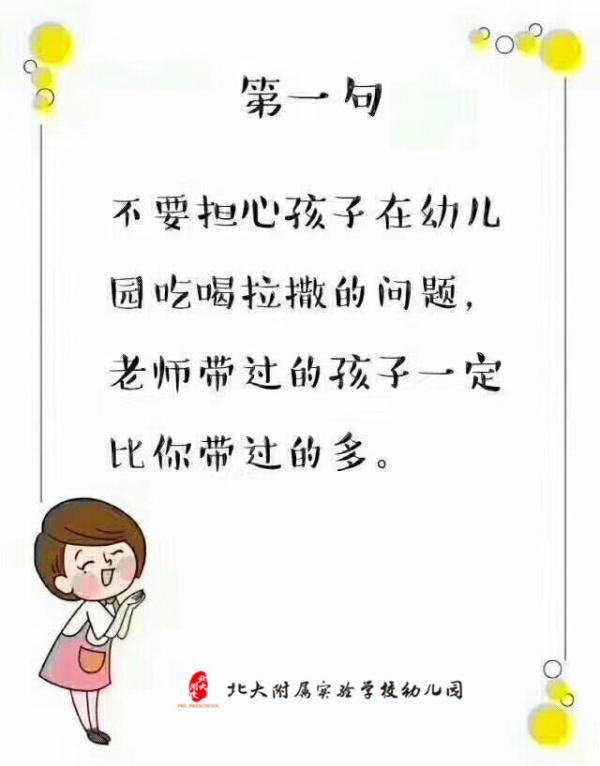 第一句
不要担心孩子在幼儿
园吃喝拉撒的问题，
老师带过的孩子一定
比你带过的多。
北大附属实验学校幼儿园